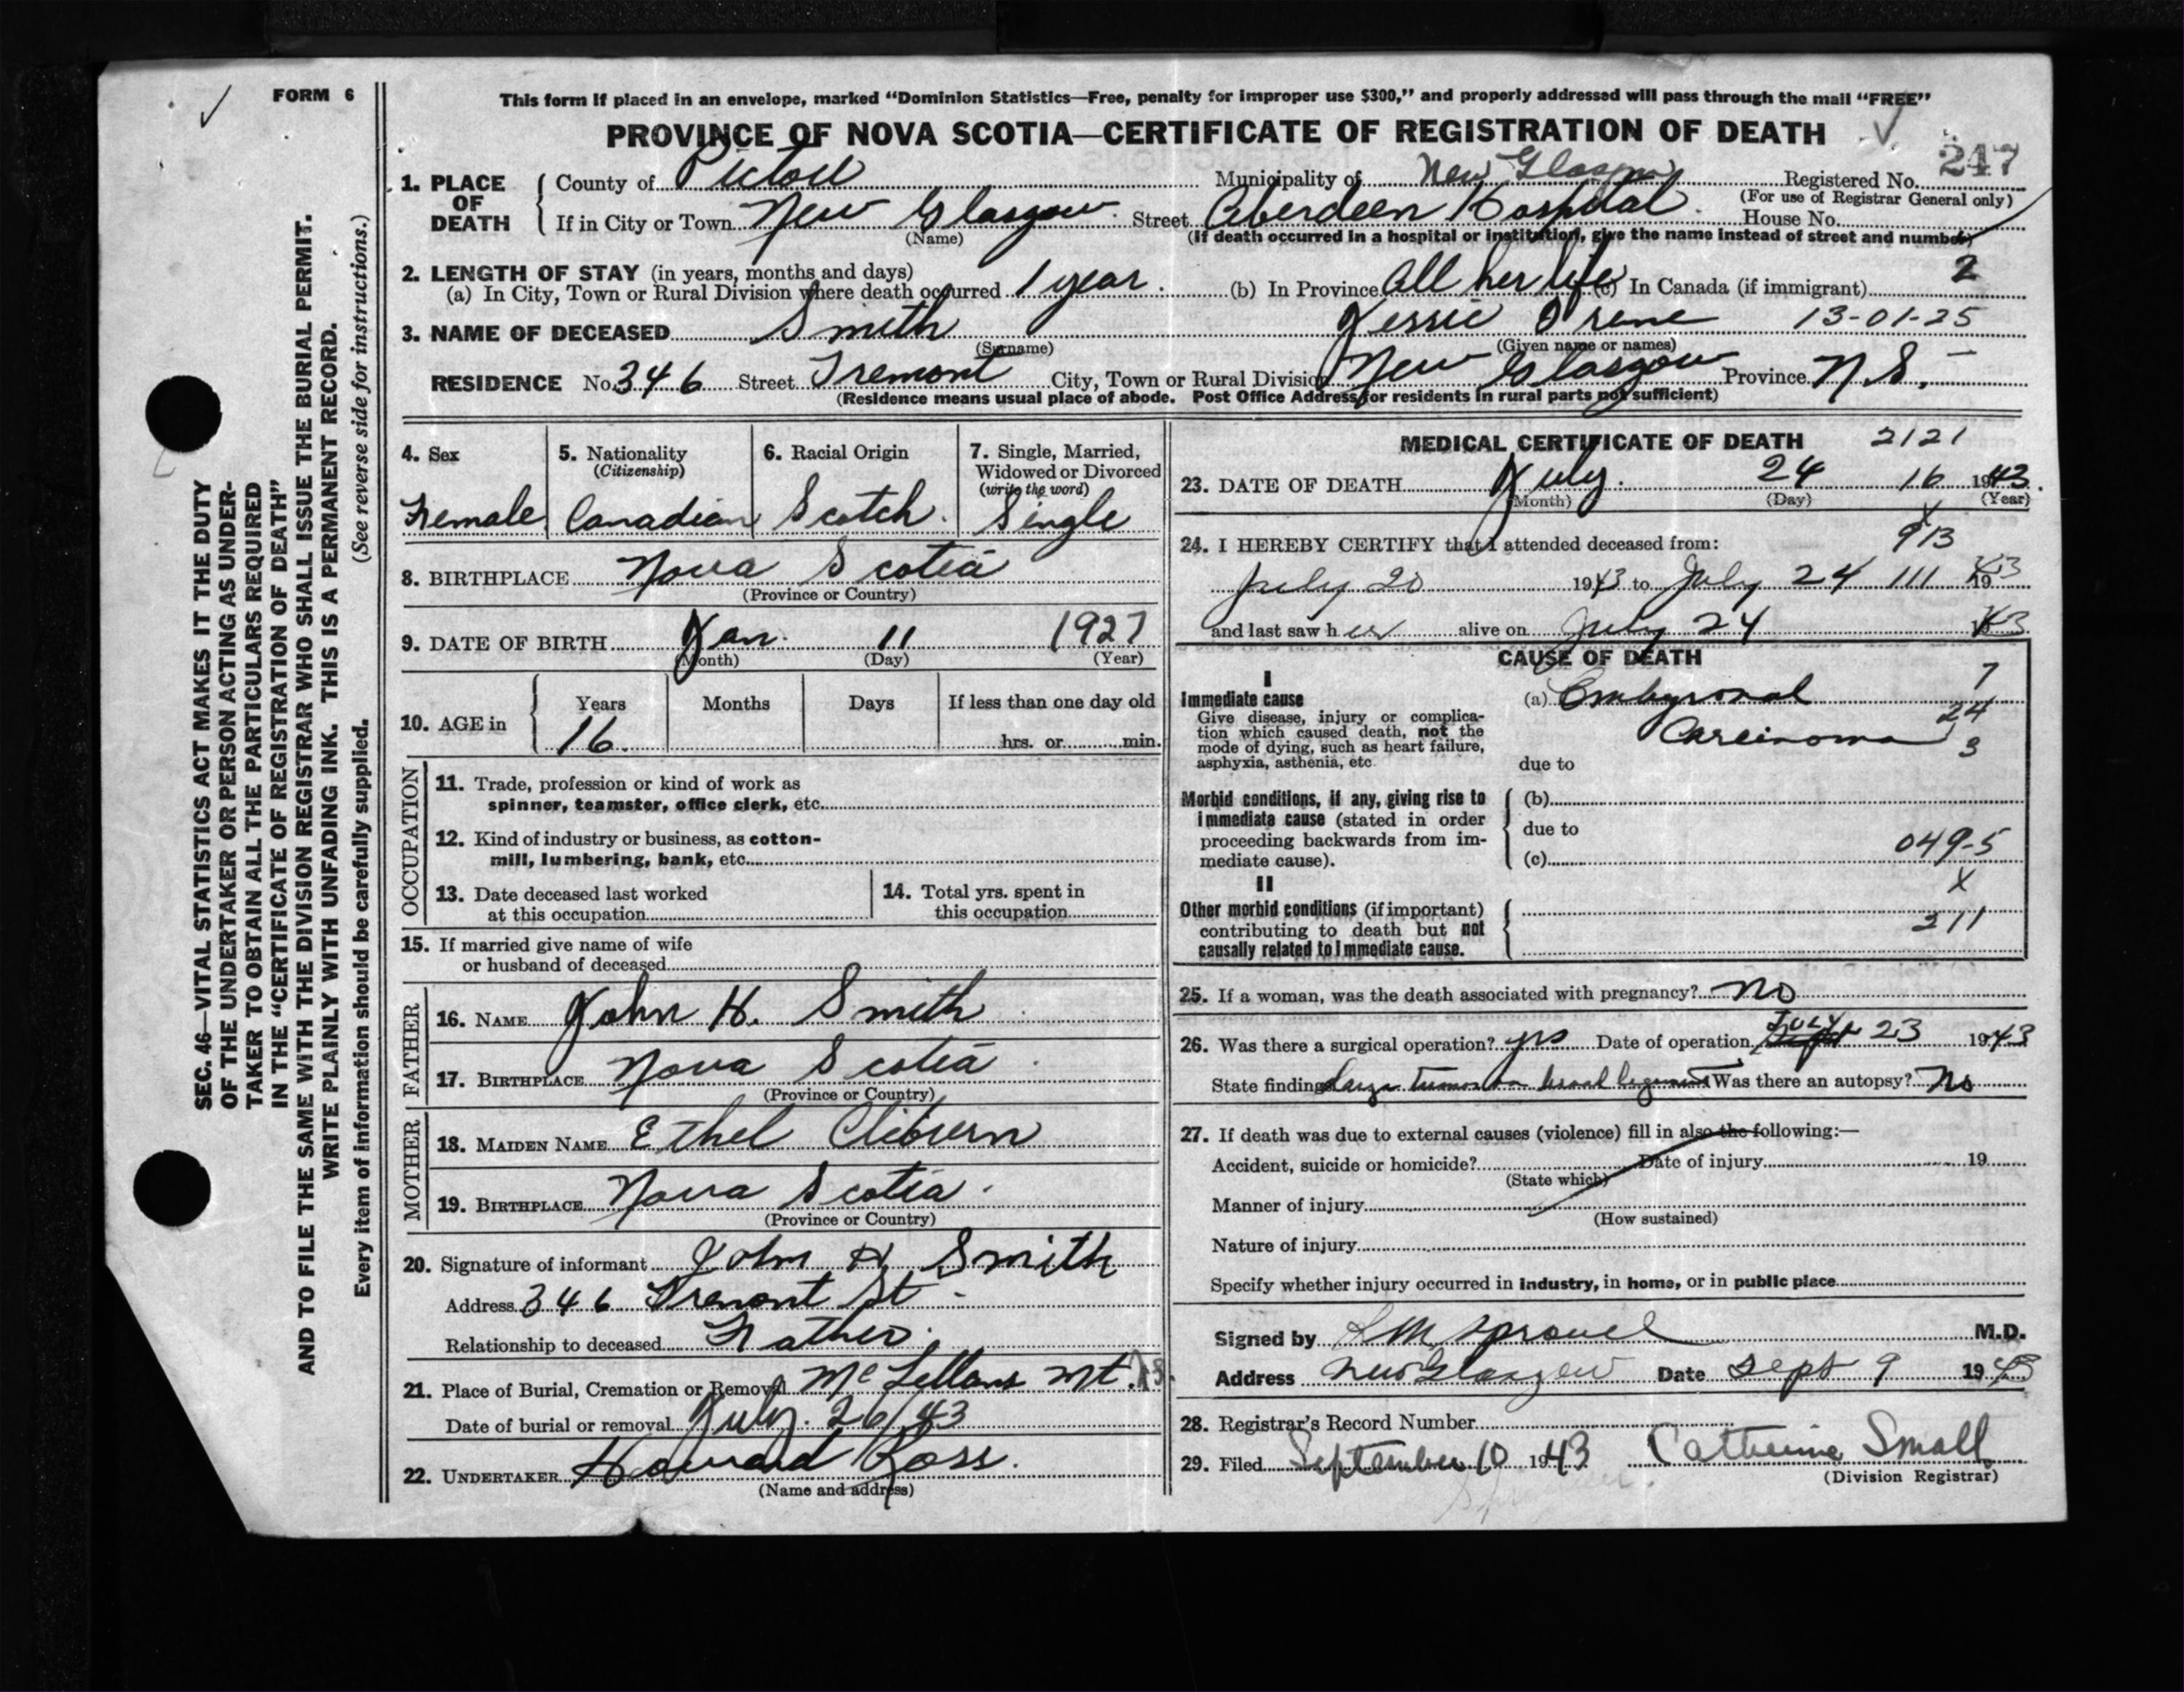 FORM 6
This form if placed in an envelope, marked "Dominion Statistics—Free, penalty for improper use $300," and properly addressed will pass through the mail "FREE"
PROVINCE OF NOVA SCOTIA—CERTIFICATE OF REGISTRATION OF DEATH
247
1. PLACE OF DEATH
County of Pictou Municipality of New Glasgow Registered No.
(For use of Registrar General only)
If in City or Town New Glasgow. Street Aberdeen Hospital. House No.
(Name) (If death occurred in a hospital or institution, give the name instead of street and number)
2. LENGTH OF STAY (in years, months and days)
(a) In City, Town or Rural Division where death occurred 1 year. (b) In Province All her life (c) In Canada (if immigrant) 2
3. NAME OF DECEASED Smith Jessie Irene 13-01-25
(Surname) (Given name or names)
RESIDENCE No. 346 Street Tremont City, Town or Rural Division New Glasgow Province N.S.
(Residence means usual place of abode. Post Office Address for residents in rural parts not sufficient)
SEC. 46—VITAL STATISTICS ACT MAKES IT THE DUTY
OF THE UNDERTAKER OR PERSON ACTING AS UNDER-
TAKER TO OBTAIN ALL THE PARTICULARS REQUIRED
IN THE "CERTIFICATE OF REGISTRATION OF DEATH"
AND TO FILE THE SAME WITH THE DIVISION REGISTRAR WHO SHALL ISSUE THE BURIAL PERMIT.
WRITE PLAINLY WITH UNFADING INK. THIS IS A PERMANENT RECORD.
Every item of information should be carefully supplied. (See reverse side for instructions.)
4. Sex
Female
5. Nationality
(Citizenship)
Canadian
6. Racial Origin
Scotch.
7. Single, Married,
Widowed or Divorced
(write the word)
Single
8. BIRTHPLACE Nova Scotia
(Province or Country)
9. DATE OF BIRTH Jan. 11 1927
(Month) (Day) (Year)
10. AGE in
Years Months Days If less than one day old
16. hrs. or min.
OCCUPATION
11. Trade, profession or kind of work as
spinner, teamster, office clerk, etc.
12. Kind of industry or business, as cotton-
mill, lumbering, bank, etc.
13. Date deceased last worked
at this occupation
14. Total yrs. spent in
this occupation
15. If married give name of wife
or husband of deceased
FATHER
16. NAME John H. Smith
17. BIRTHPLACE Nova Scotia
(Province or Country)
MOTHER
18. MAIDEN NAME Ethel Cliburn
19. BIRTHPLACE Nova Scotia.
(Province or Country)
20. Signature of informant John H Smith
Address 346 Tremont St
Relationship to deceased Father.
21. Place of Burial, Cremation or Removal McLellans Mt. N.S.
Date of burial or removal July. 26/43
22. UNDERTAKER Howard Ross.
(Name and address)
MEDICAL CERTIFICATE OF DEATH 2121
23. DATE OF DEATH July. 24 16 1943.
(Month) (Day) (Year)
X
24. I HEREBY CERTIFY that I attended deceased from: 913
July 20 1943 to July 24 111 1943
and last saw her alive on July 24 1943
CAUSE OF DEATH
I
Immediate cause
Give disease, injury or complica-
tion which caused death, not the
mode of dying, such as heart failure,
asphyxia, asthenia, etc
(a) Embyronal 7
Carcinoma 24
3
due to
Morbid conditions, if any, giving rise to
immediate cause (stated in order
proceeding backwards from im-
mediate cause).
(b)
due to
(c) 049-5
X
II
Other morbid conditions (if important)
contributing to death but not
causally related to immediate cause.
211
25. If a woman, was the death associated with pregnancy? No
26. Was there a surgical operation? yes Date of operation JULY 23 1943
State findings Large tumor on broad ligament Was there an autopsy? No
27. If death was due to external causes (violence) fill in also the following:—
Accident, suicide or homicide? Date of injury 19
(State which)
Manner of injury
(How sustained)
Nature of injury
Specify whether injury occurred in industry, in home, or in public place
Signed by M.D.
Address New Glasgow Date Sept 9 1943
28. Registrar's Record Number
29. Filed September 10 1943 Catherine Small
(Division Registrar)